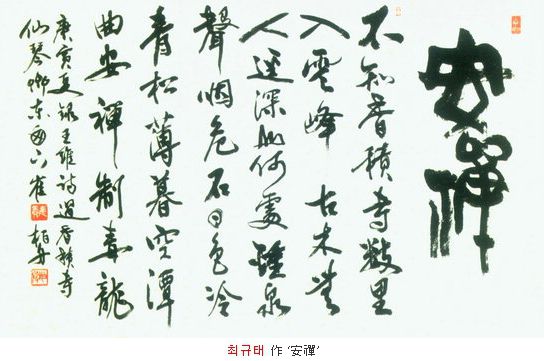 安禪
不知香積寺數里
入雲峰古木無
人逕深山何處鐘泉
聲咽危石日色冷
青松薄暮空潭
曲安禪制毒龍
庚寅夏錄王維詩過香積寺
仙琴鄉東 崔
최규태 作 ‘安禪’